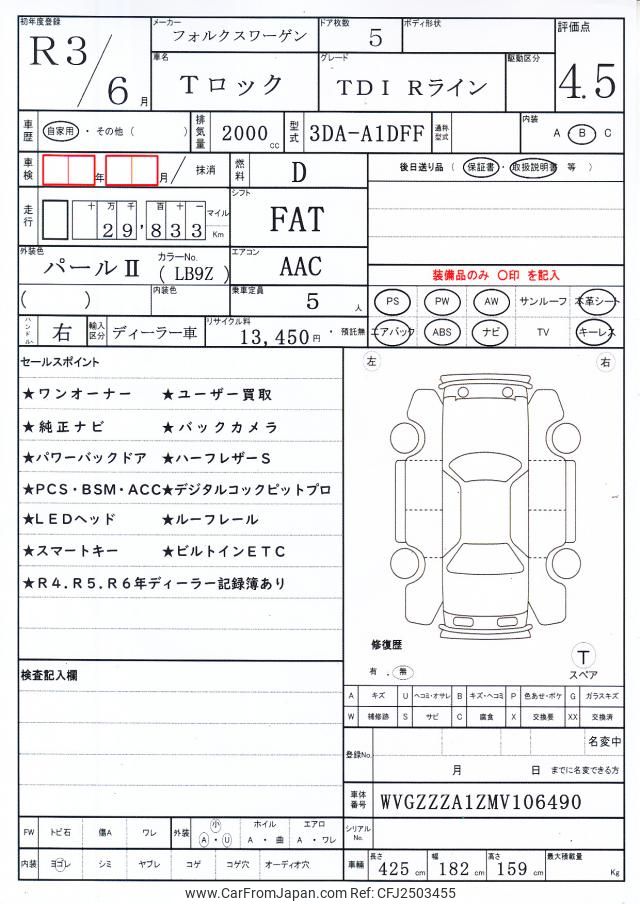 初年度登録 メーカー ドア枚数 ボディ形状 評価点
R3/6月 フォルクスワーゲン 5
車名 グレード 駆動区分
Tロック TDI Rライン 4.5
車歴 自家用・その他( ) 排気量 2000cc 型式 3DA-A1DFF 通称型式 内装 A B C
車検 年 月/ 抹消 燃料 D 後日送り品(保証書・取扱説明書 等)
走行 十万千百十一 マイル Km シフト
29,833 FAT
外装色 カラーNo. エアコン
パールⅡ (LB9Z) AAC 装備品のみ 〇印 を記入
( ) 内装色 乗車定員 5人 PS PW AW サンルーフ 本革シート
ハンドル 右 輸入区分 ディーラー車 リサイクル料 13,450円・預託無 エアバック ABS ナビ TV キーレス
セールスポイント 左 右
★ワンオーナー ★ユーザー買取
★純正ナビ ★バックカメラ
★パワーバックドア ★ハーフレザーS
★PCS・BSM・ACC★デジタルコックピットプロ
★LEDヘッド ★ルーフレール
★スマートキー ★ビルトインETC
★R4.R5.R6年ディーラー記録簿あり
修復歴
有 . 無 T
スペア
検査記入欄
A キズ U ヘコミ・オサレ B キズ・ヘコミ P 色あせ・ボケ G ガラスキズ
W 補修跡 S サビ C 腐食 X 交換要 XX 交換済
登録No. 名変中
月 日 までに名変できる方
車体番号 WVGZZZA1ZMV106490
FW トビ石 傷A ワレ 外装 小 A・U ホイル A・曲 エアロ A・ワレ シリアルNo.
内装 ヨゴレ シミ ヤブレ コゲ コゲ穴 オーディオ穴 車輛 長さ 425cm 幅 182cm 高さ 159cm 最大積載量 Kg
www.CarFromJapan.com Ref: CFJ2503455